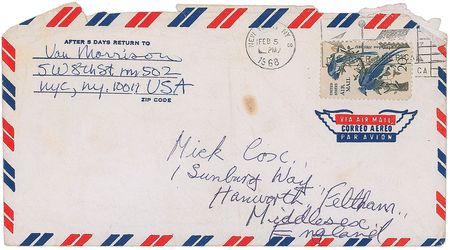 AFTER 5 DAYS RETURN TO
Van Morrison
5 W 8th St rm 502
NYC, NY. 10011 USA
ZIP CODE
NEW YORK, NY
FEB 5
PM
1968
AIR MAIL
VIA AIR MAIL
CORREO AEREO
PAR AVION
Mick Cox.
1 Sunbury Way,
Hanworth, Feltham,
Middlesex,
England